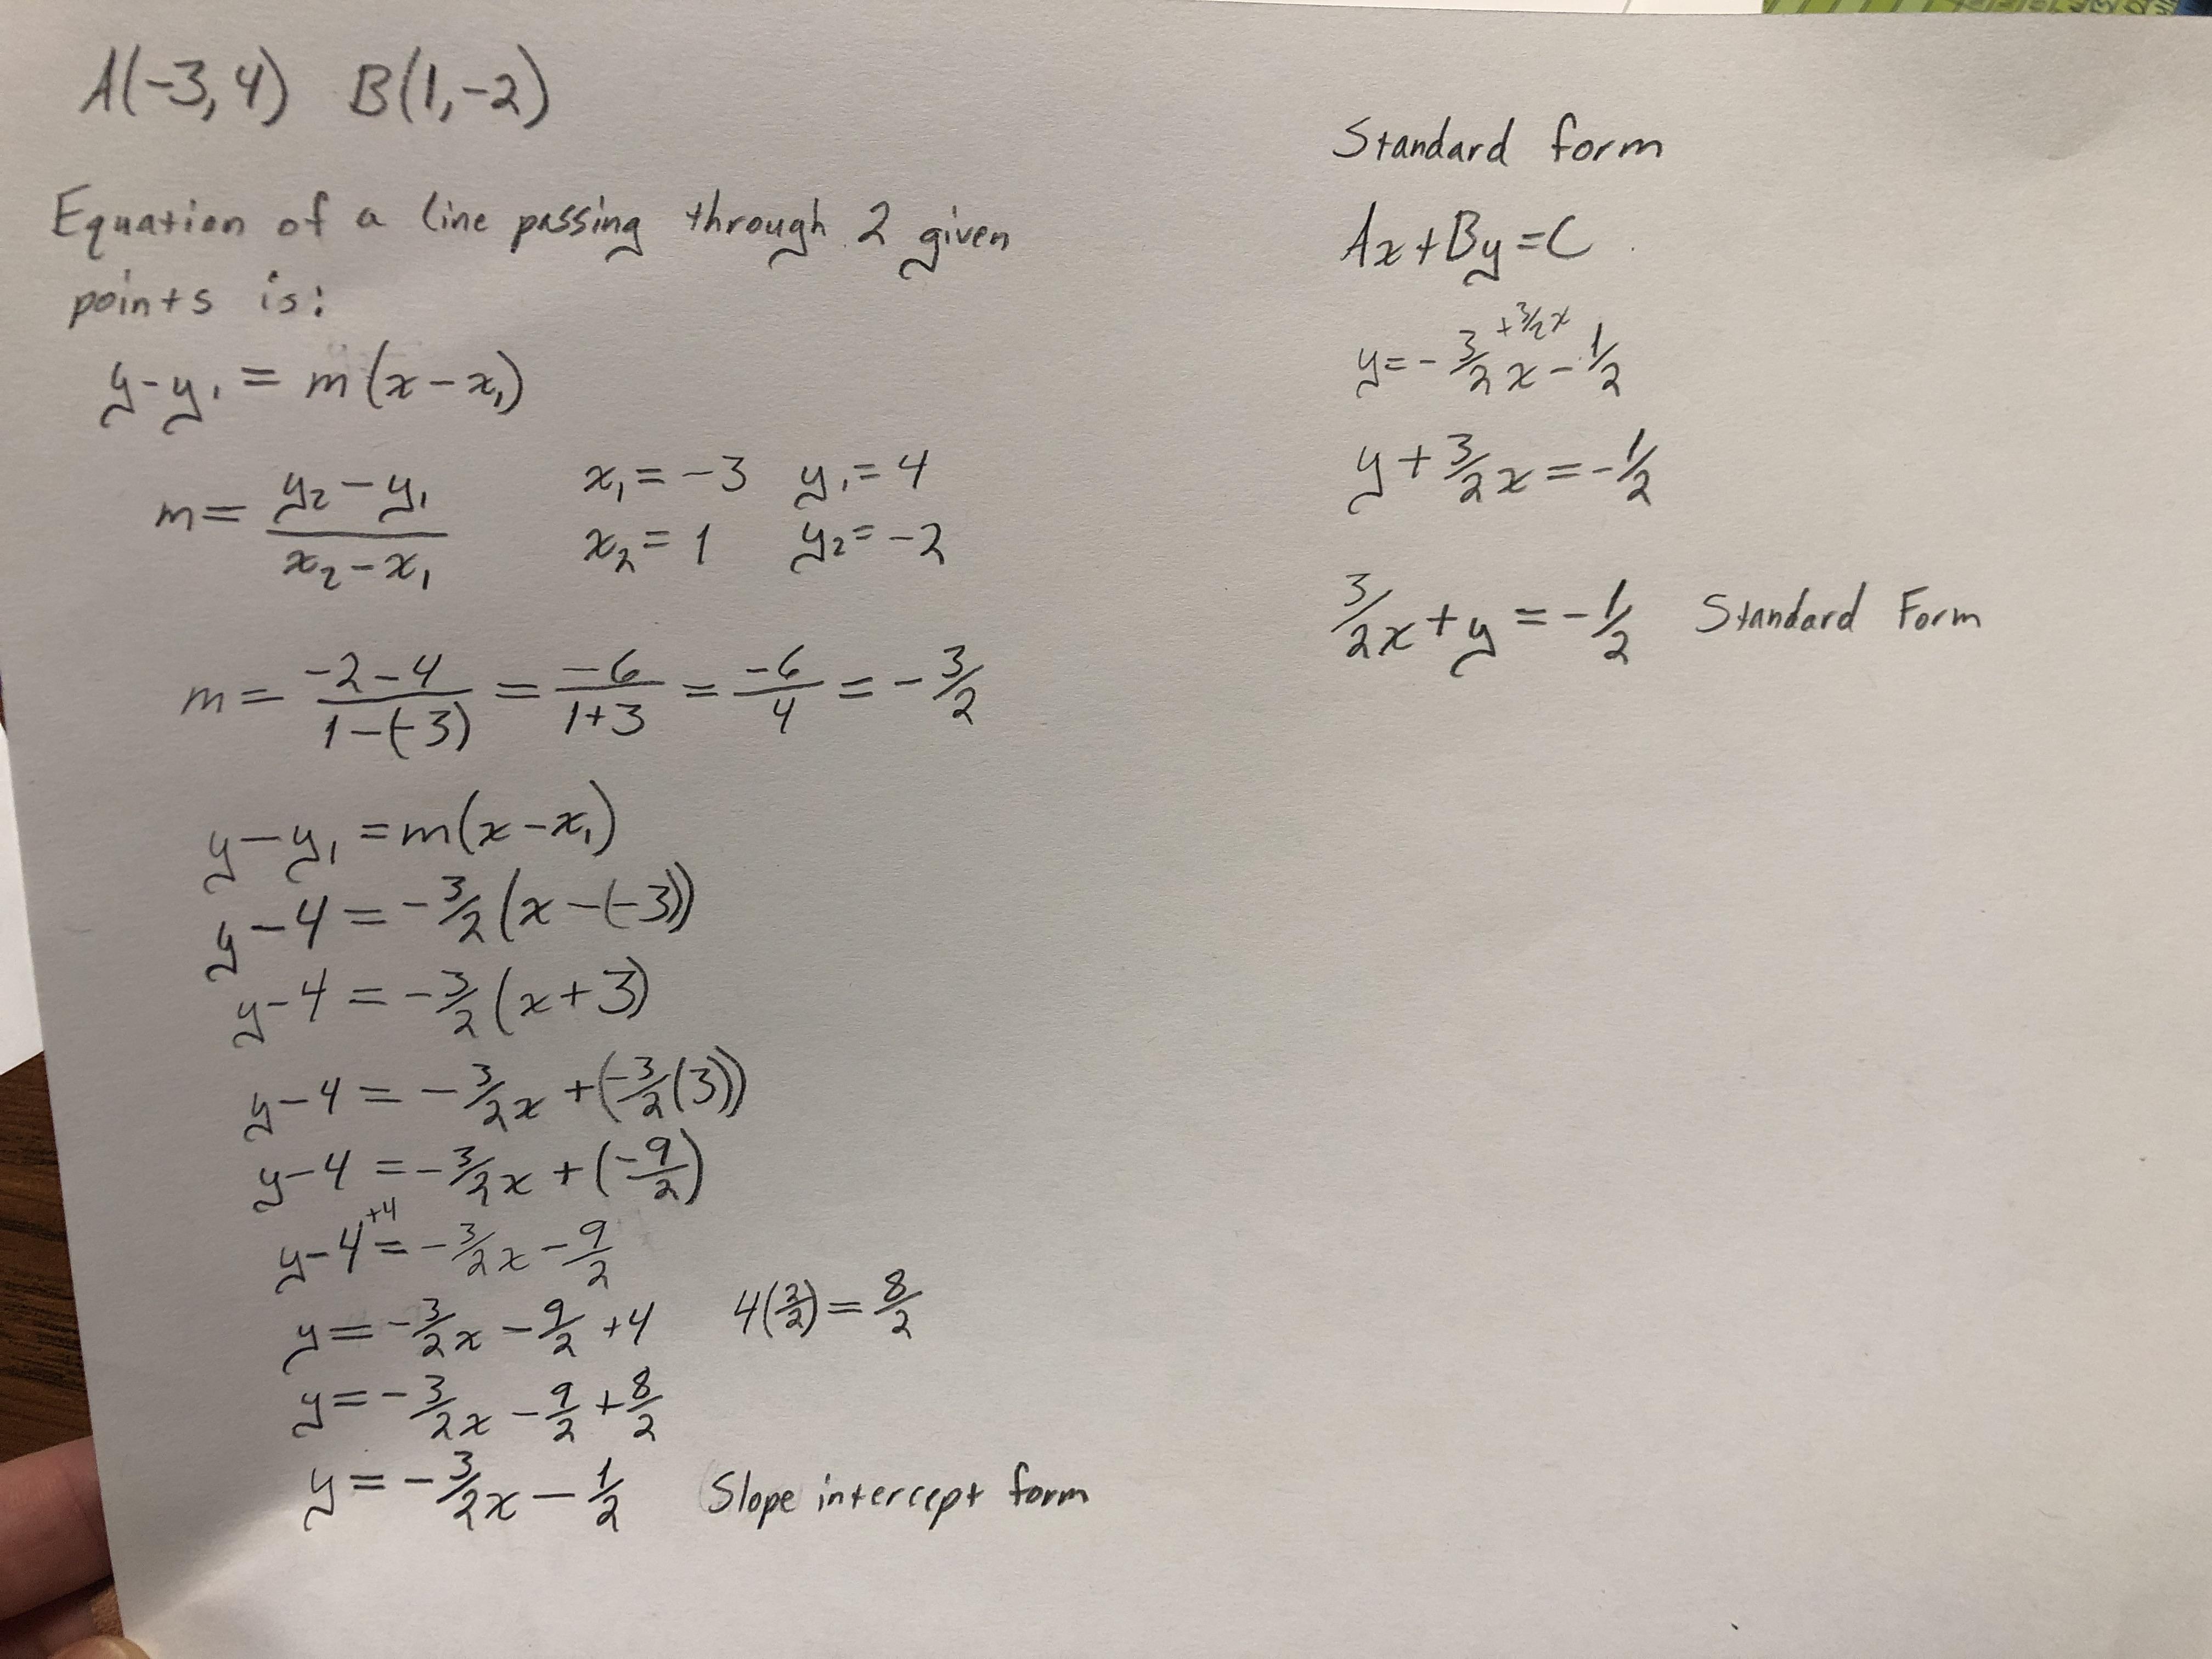 A(-3,4) B(1,-2)
Equation of a line passing through 2 given
points is:
y-y₁ = m(x-x₁)
m= y₂-y₁/x₂-x₁ x₁=-3 y₁=4
x₂=1 y₂=-2
m= -2-4/1-(-3) = -6/1+3 = -6/4 = -3/2
y-y₁=m(x-x₁)
y-4=-3/2(x-(-3))
y-4=-3/2(x+3)
y-4=-3/2x+(-3/2(3))
y-4=-3/2x+(-9/2)
+4
y-4=-3/2x-9/2
y=-3/2x-9/2+4 4(2/2)=8/2
y=-3/2x-9/2+8/2
y=-3/2x-1/2 Slope intercept form
Standard form
Ax+By=C
+3/2x
y=-3/2x-1/2
y+3/2x=-1/2
3/2x+y=-1/2 Standard Form